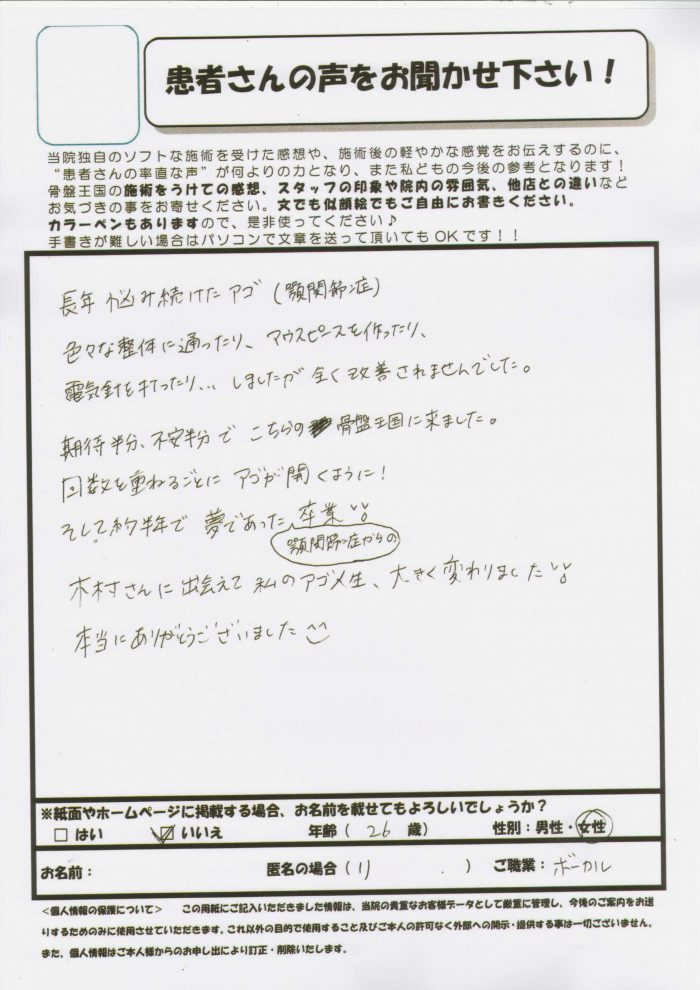 患者さんの声をお聞かせ下さい！
当院独自のソフトな施術を受けた感想や、施術後の軽やかな感覚をお伝えするのに、
“患者さんの率直な声”が何よりの力となり、また私どもの今後の参考となります！
骨盤王国の施術をうけての感想、スタッフの印象や院内の雰囲気、他店との違いなど
お気づきの事をお寄せください。文でも似顔絵でもご自由にお書きください。
カラーペンもありますので、是非使ってください♪
手書きが難しい場合はパソコンで文章を送って頂いてもOKです！！
長年 悩み続けた アゴ (顎関節症)
色々な整体に通ったり、マウスピースを作ったり、
電気針を打ったり、、、しましたが 全く改善されませんでした。
期待半分、不安半分で こちらの 骨盤王国に来ました。
回数を重ねるごとに アゴが開くように！
そして約半年で 夢であった 卒業
顎関節症からの
木村さんに 出会えて 私のアゴ人生、大きく変わりました
本当にありがとうございました
※紙面やホームページに掲載する場合、お名前を載せてもよろしいでしょうか？
□ はい ☑ いいえ 年齢（ 26 歳） 性別：男性・女性
お名前： 匿名の場合（ ） ご職業：ボーカル
＜個人情報の保護について＞ この用紙にご記入いただきました情報は、当院の貴重なお客様データとして厳重に管理し、今後のご案内をお送
りするためのみに使用させていただきます。これ以外の目的で使用すること及びご本人の許可なく外部への開示・提供する事は一切ございません。
また、個人情報はご本人様からのお申し出により訂正・削除いたします。